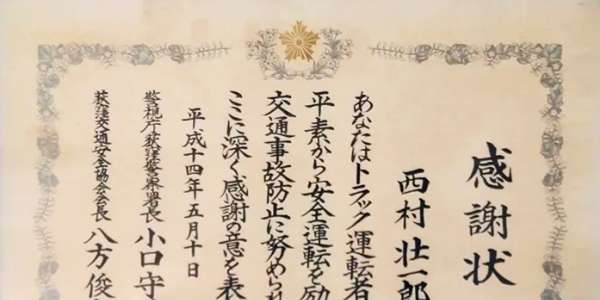 感謝状
西村壮一郎
あなたはトラック運転者
平素から安全運転を励
交通事故防止に努められ
ここに深く感謝の意を表
平成十四年五月十日
警視庁荻窪警察署長 小口守
荻窪交通安全協会会長 八方俊